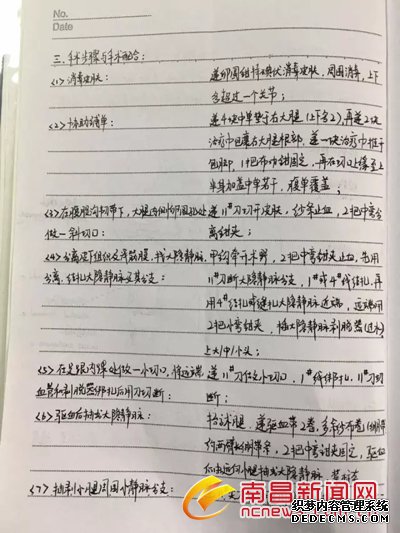 No.
Date
三、手术步骤与手术配合:
<1> 消毒皮肤: 递卵圆钳持碘伏消毒皮肤,周围消毒,上下
各超过一个关节;
<2> 协助铺单: 递4块中单垫于右大腿(上下各2),再递2块
治疗巾包裹右大腿根部,递一块治疗巾用于
包脚,1把布巾钳固定,再在切口上缘至上
半身加盖中单若干,腹单覆盖;
<3> 在腹股沟韧带下,大腿内侧卵圆孔处 递11#刀切开皮肤,纱条止血,2把中弯
做一斜切口: 分离钳夹;
<4> 分离皮下组织及浅筋膜,找大隐静脉, 甲钩牵开术野,2把中弯钳夹止血,先用
分离,结扎大隐静脉及其分支: 11#刀断大隐静脉分支,1#或4#线结扎,再
用4#结扎或缝扎大隐静脉近端,远端用
2把小弯钳夹,插大隐静脉剥脱器(过水)
上大/中/小头;
<5> 在足跟内缘处做一小切口,将远端 递11#刀作这小切口,1#线绑扎,11#刀切
血管和剥脱器绑扎后用刀切断: 断;
<6> 驱血后抽出大隐静脉: 抬术腿,递驱血带2卷,多余纱布卷1侧
2把中弯钳夹固定,驱血
大隐静脉
<7> 抽剥小腿周围小静脉分支:
南昌新闻网